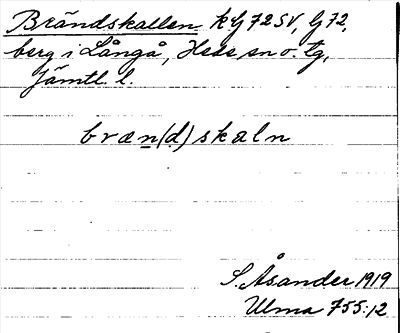 Brändskallen kG72SV, G72,
berg i Långå, Hede sn o. tg,
Jämtl. l.
bræn(d)skaln
S. Åsander 1919
Ulma 755:12